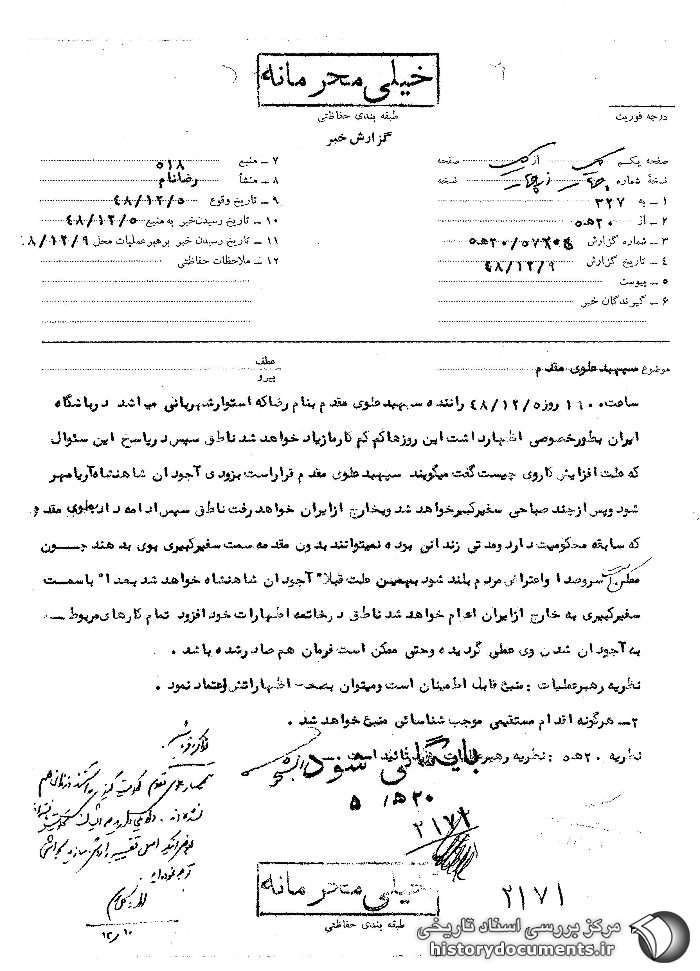 خیلی محرمانه
طبقه بندی حفاظتی
گزارش خبر
درجه فوریت
صفحه یکم از صفحه
نسخهٔ شماره چهار از چهار نسخه
۱ ـ به ۳۲۷
۲ ـ از ۲۰ه۵
۳ ـ شماره گزارش
۴ ـ تاریخ گزارش ۴۸/۱۲/۹
۵ ـ پیوست
۶ ـ گیرندگان خبر
۷ ـ منبع ۵۱۸
۸ ـ منشأ رضانام
۹ ـ تاریخ وقوع ۴۸/۱۲/۵
۱۰ ـ تاریخ رسیدن خبر به منبع ۴۸/۱۲/۵
۱۱ ـ تاریخ رسیدن خبر برهبر عملیات محل ۴۸/۱۲/۹
۱۲ ـ ملاحظات حفاظتی
موضوع سپهبد علوی مقدم
عطف
پیرو
ساعت ۱۱۰۰ روز ۴۸/۱۲/۵ راننده سپهبد علوی مقدم بنام رضا که استوار شهربانی میباشد در باشگاه
ایران بطور خصوصی اظهار داشت این روزها کم کم کار ما زیاد خواهد شد ناطق سپس در پاسخ این سئوال
که علت افزایش کار وی چیست گفت میگویند سپهبد علوی مقدم قرار است بزودی آجودان شاهنشاه آریامهر
شود و پس از چند صباحی سفیر کبیر خواهد شد و بخارج از ایران خواهد رفت ناطق سپس ادامه داد علوی مقدم
که سابقه محکومیت دارد و مدتی زندانی بوده نمیتوانند بدون مقدمه سمت سفیر کبیری بوی بدهند چسون
ممکن است سروصدا و اعتراض مردم بلند شود بهمین علت قبلا" آجودان شاهنشاه خواهد شد بعدا" با سمت
سفیر کبیری به خارج از ایران اعزام خواهد شد ناطق در خاتمه اظهارات خود افزود تمام کارهای مربوط
به آجودان شدن وی عملی گردیده و حتی ممکن است فرمان هم صادر شده باشد .
نظریه رهبر عملیات : منبع قابل اطمینان است و میتوان بصحت اظهاراتش اعتماد نمود .
۲ـ هرگونه اقدام مستقیمی موجب شناسائی منبع خواهد شد .
نظریه ۲۰ه۵ : نظریه رهبر عملیات مورد تائید است
بایگانی شود
۲۰ه۵
۲۱۷۲
خیلی محرمانه
طبقه بندی حفاظتی
۲۱۷۱
۱۲/۱۰
مرکز بررسی اسناد تاریخی
historydocuments.ir